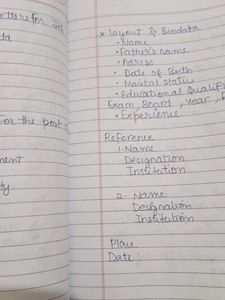 ta
or the post
ment
ty.
* Layout & Biodata
• Name
• Father's name
• Adress
• Date of Birth
• Marital status
• Educational Qualif
Exam, Board, year,
• Experience
Reference
1. Name
Designation
Institution
2- Name
Designation
Institution
Place
Date: